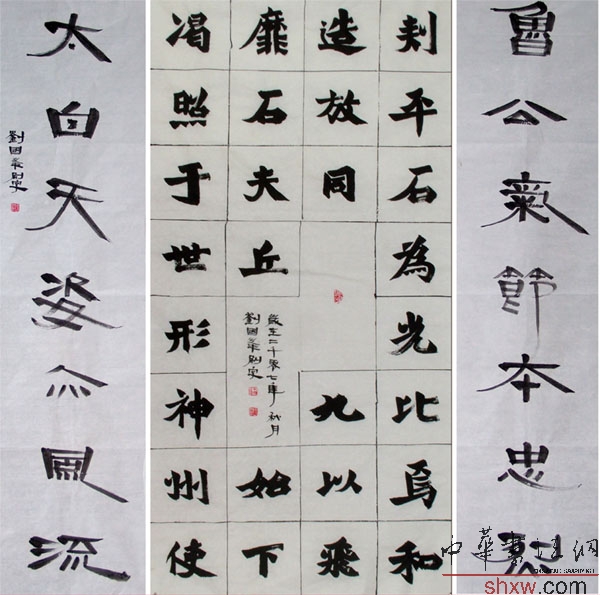 魯公氣節本忠
平石為光比焉和
造放同九以飛
靡石夫丘始下
照于世形神州使
歲在二千零七年秋月
劉國
太白天姿亦風流
劉國
中華書法網
shxw.com